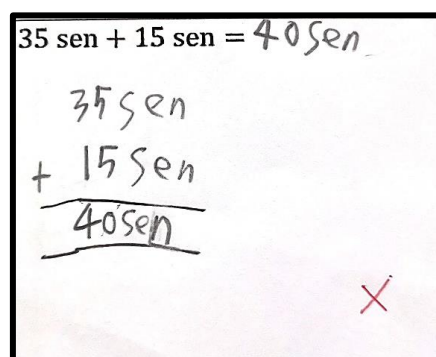 35 sen + 15 sen = 40 sen
35 sen
+ 15 sen
40 sen